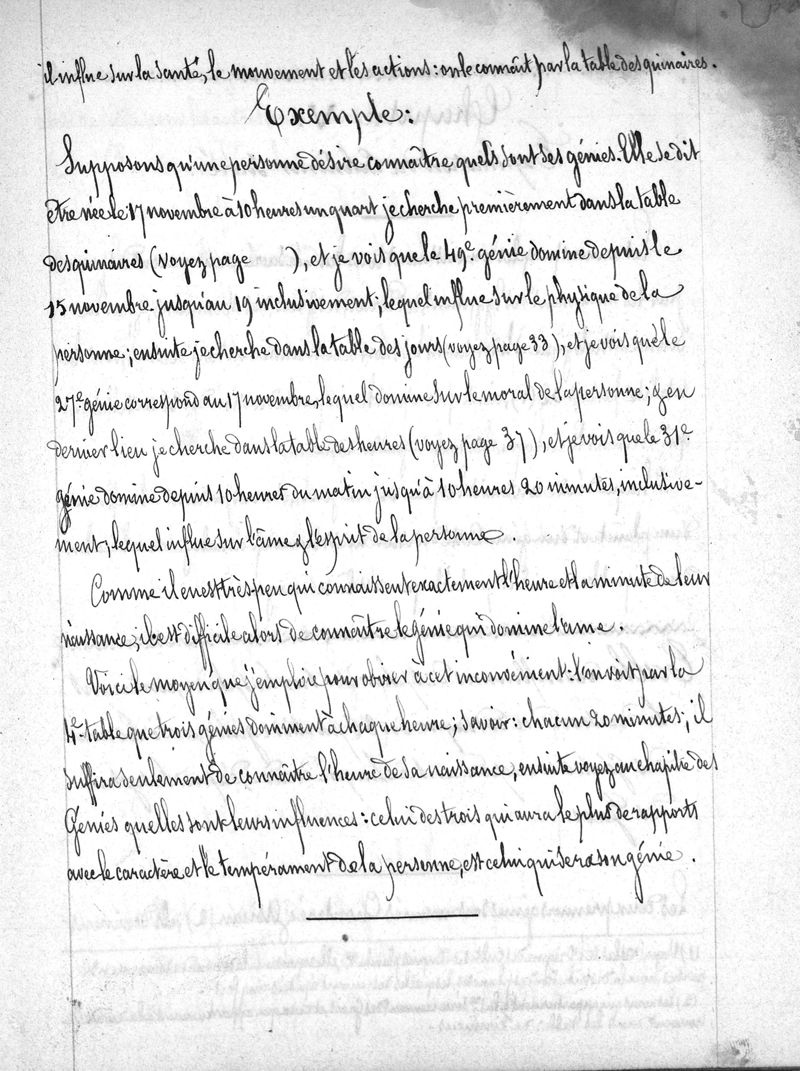 il influe sur la santé, le mouvement et les actions : on le connaît par la table des quinaires.
Exemple :
Supposons qu'une personne désire connaître quels sont ses génies. Elle se dit
être née le 17 novembre à 10 heures un quart je cherche premièrement dans la table
des quinaires (voyez page ), et je vois que le 49e. génie domine depuis le
15 novembre jusqu'au 19 inclusivement ; lequel influe sur le physique de la
personne ; ensuite je cherche dans la table des jours (voyez page 33), et je vois que le
27e. génie correspond au 17 novembre, lequel domine sur le moral de la personne ; & en
dernier lieu je cherche dans la table des heures (voyez page 37), et je vois que le 31e.
génie domine depuis 10 heures du matin jusqu'à 10 heures 20 minutes, inclusive-
ment, lequel influe sur l'âme & l'esprit de la personne.
Comme il en est très peu qui connaissent exactement l'heure et la minute de leur
naissance, il est difficile alors de connaître le génie qui domine l'ame.
Voici le moyen que j'emploie pour obvier à cet inconvénient : l'on voit par la
4e. table que trois génies dominent à chaque heure ; savoir : chacun 20 minutes ; il
suffira seulement de connaître l'heure de sa naissance, ensuite voyez au chapitre des
Génies quelles sont leurs influences : celui des trois qui aura le plus de rapports
avec le caractère et le tempérament de la personne, est celui qui sera son génie.